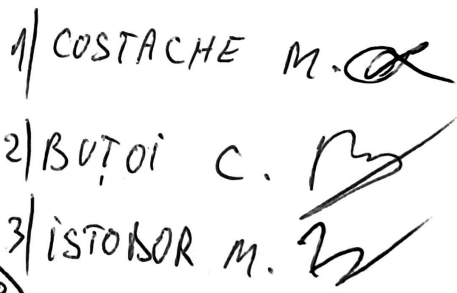 1) COSTACHE M.
2) BUȚOI C.
3) ISTODOR M.